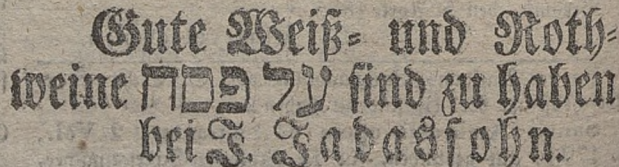 Gute Weiß- und Roth-
weine על פסח sind zu haben
bei J. Jadassohn.